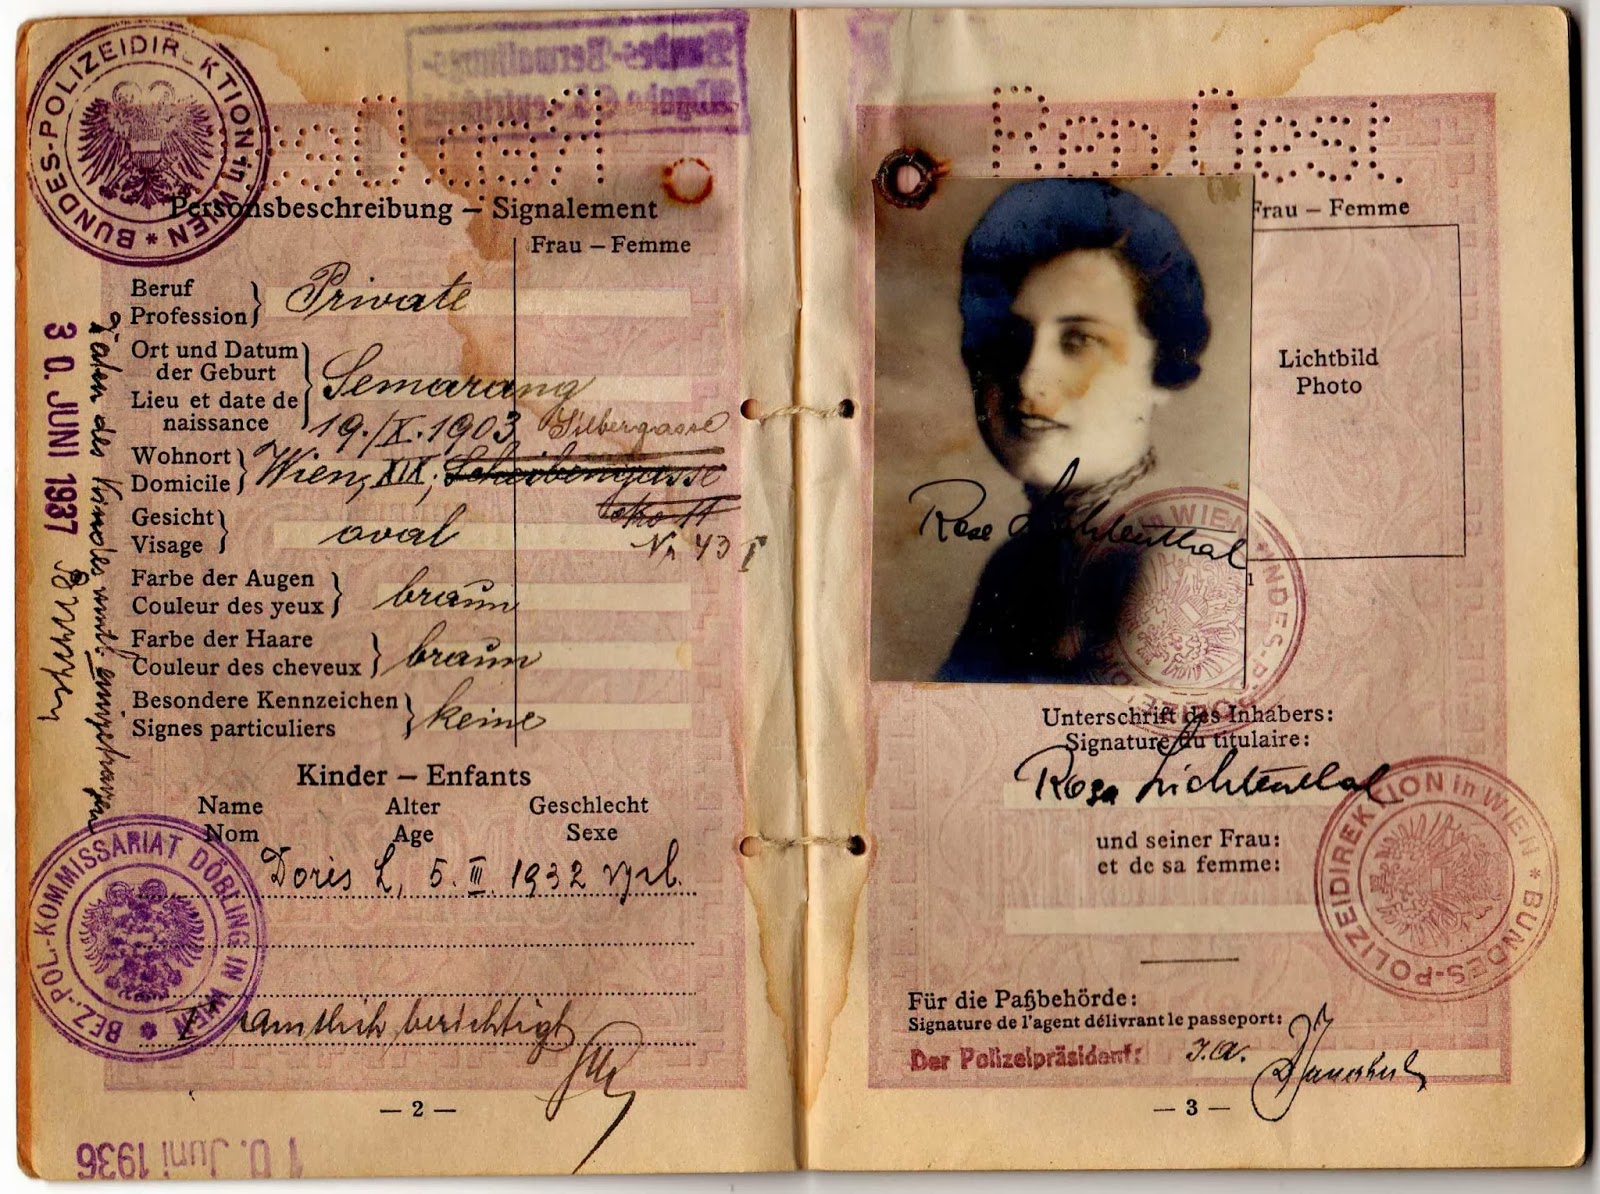 BUNDES-POLIZEIDIREKTION in WIEN *
Rep. Oest.
Personsbeschreibung – Signalement
Frau – Femme
Beruf
Profession
Private
Ort und Datum
der Geburt
Lieu et date de
naissance
Semarang
19./X. 1903
Silbergasse
Wohnort
Domicile
Wien, XIX, Scheibengasse
Nr 11
Nr 43
Gesicht
Visage
oval
Farbe der Augen
Couleur des yeux
braun
Farbe der Haare
Couleur des cheveux
braun
Besondere Kennzeichen
Signes particuliers
keine
Kinder – Enfants
Name Alter Geschlecht
Nom Age Sexe
Doris L, 5. III. 1932
amtlich berichtigt
— 2 —
30. JUNI 1937
des Kindes amtl. eingetragen
BEZ.-POL.-KOMMISSARIAT DÖBLING IN WIEN *
10. Juni 1936
Rep. Oest.
Frau – Femme
Lichtbild
Photo
Rose Lichtenthal
1
BUNDES-POLIZEIDIREKTION in WIEN *
Unterschrift des Inhabers:
Signature du titulaire:
Rosa Lichtenthal
und seiner Frau:
et de sa femme:
BUNDES-POLIZEIDIREKTION in WIEN *
Für die Paßbehörde:
Signature de l'agent délivrant le passeport:
Der Polizeipräsident:
I.A.
— 3 —